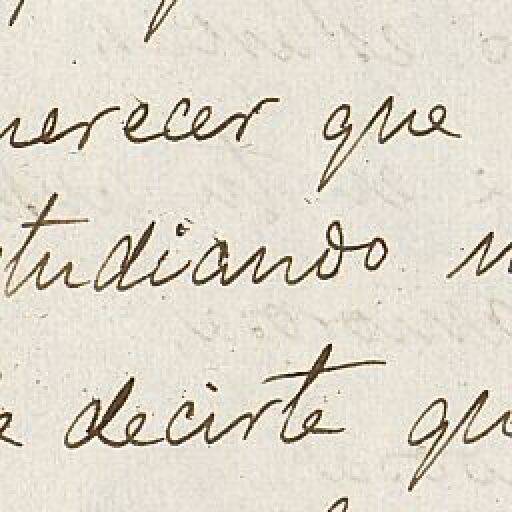 merecer que
studiando
decirte qu